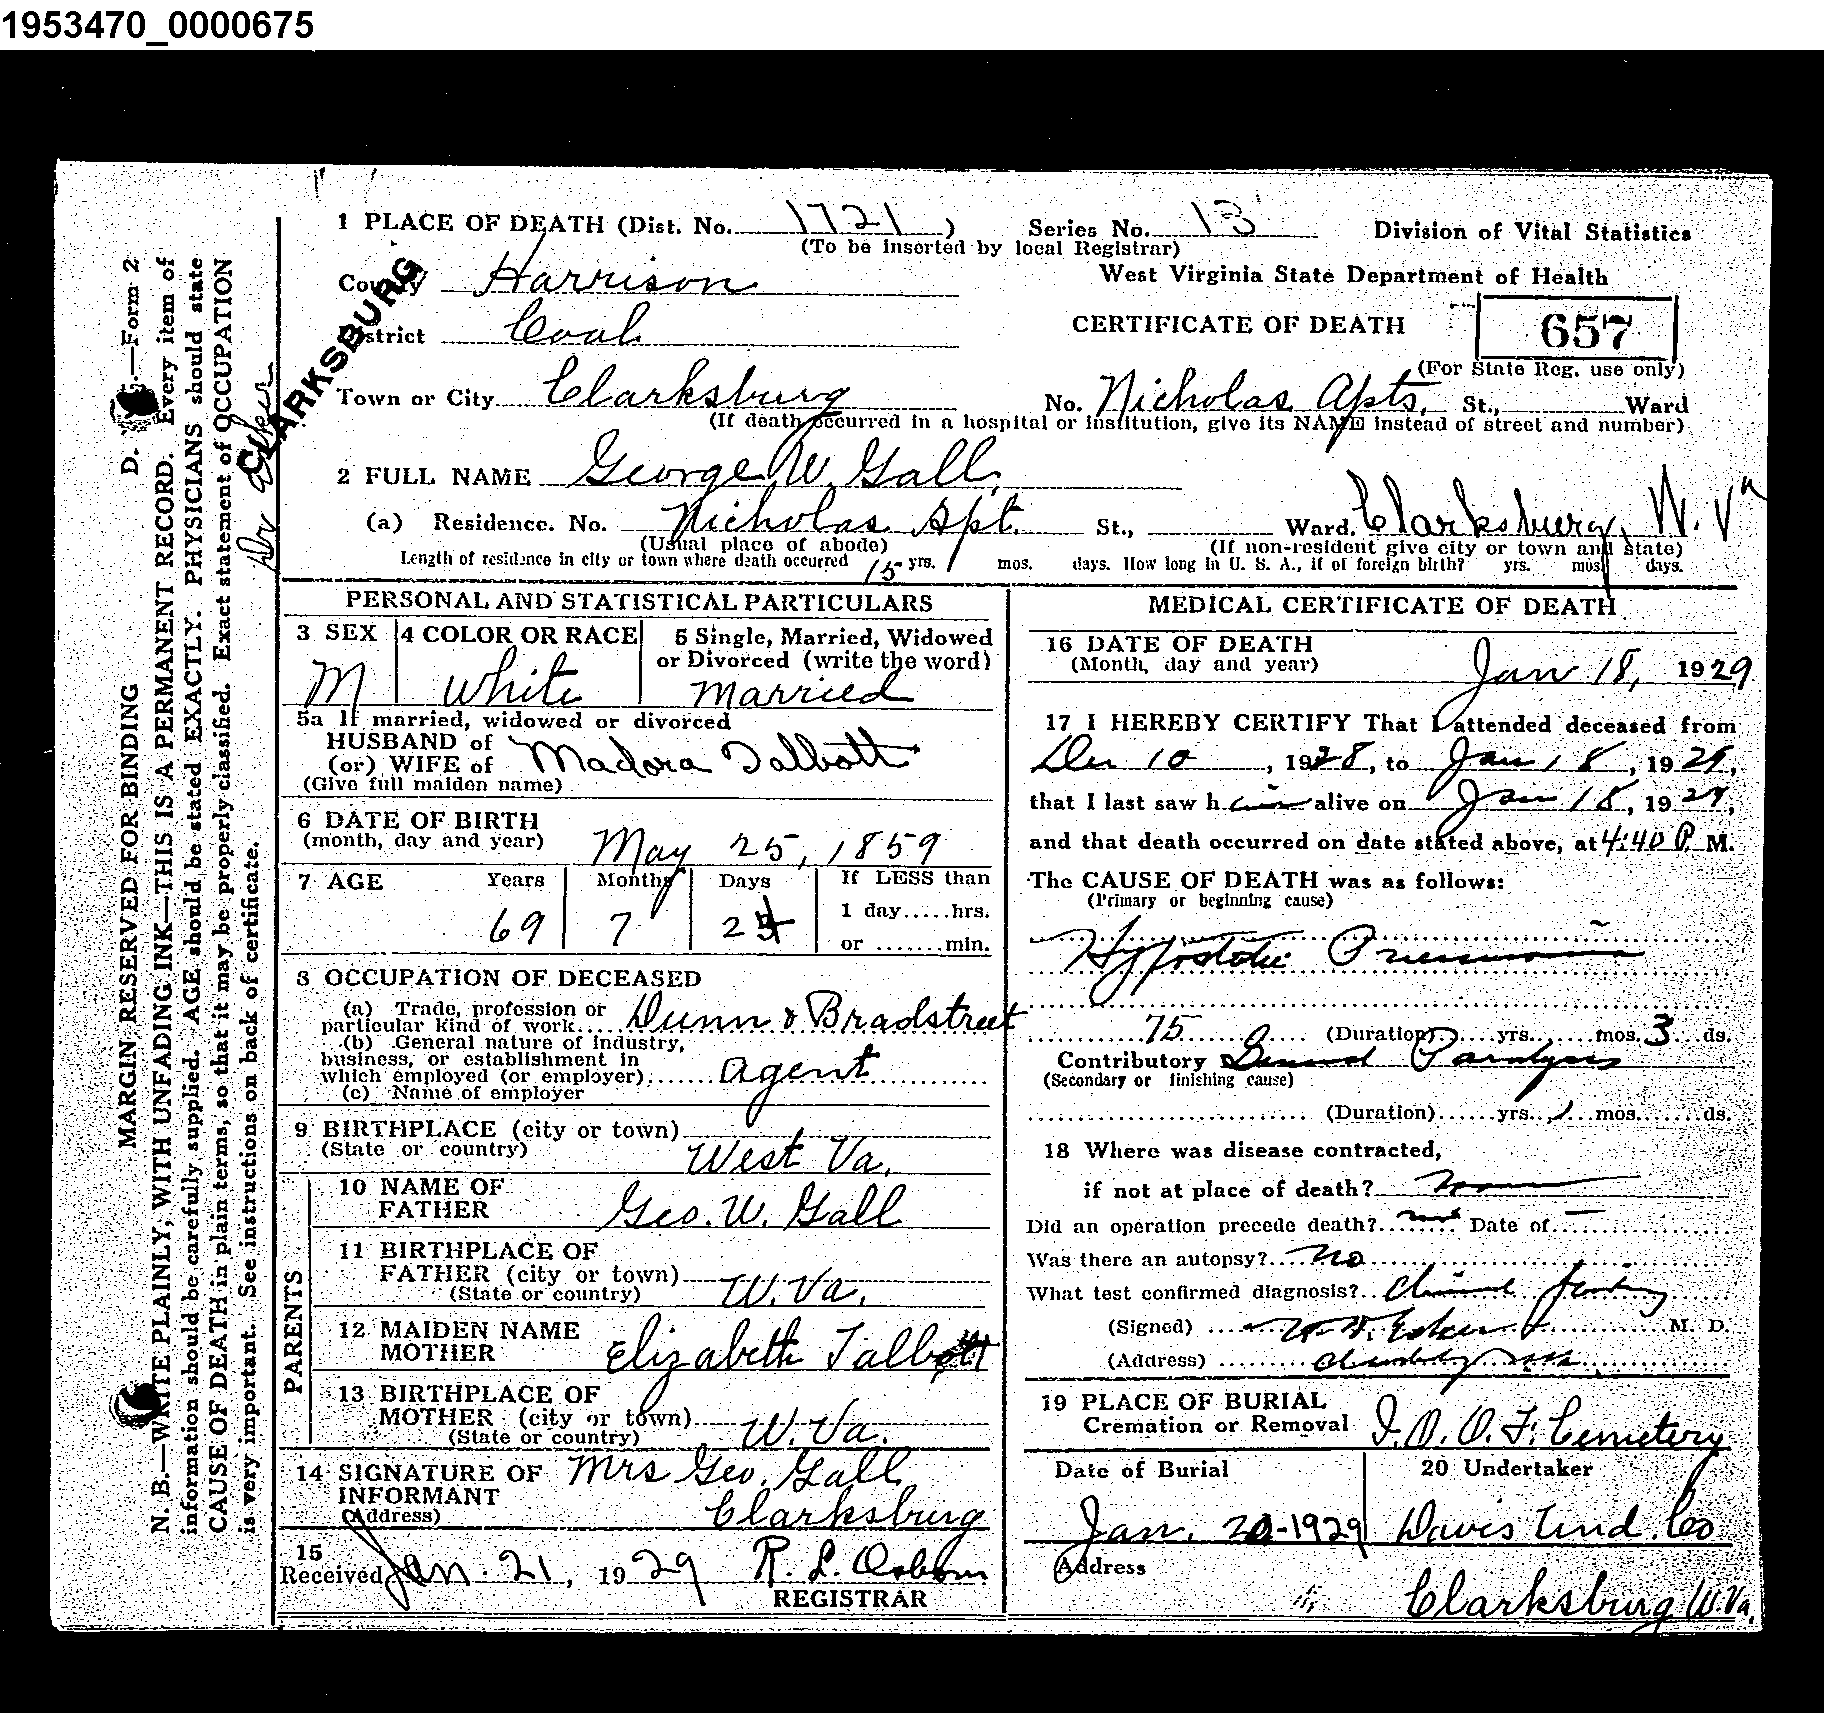 1953470_0000675
1 PLACE OF DEATH (Dist. No. 1721) Series No. 13 Division of Vital Statistics
(To be inserted by local Registrar)
West Virginia State Department of Health
County Harrison
CLARKSBURG
District Coal
CERTIFICATE OF DEATH 657
(For State Reg. use only)
Town or City Clarksburg No. Nicholas Apts. St., Ward
(If death occurred in a hospital or institution, give its NAME instead of street and number)
2 FULL NAME George W. Gall
(a) Residence. No. Nicholas Apt. St., Ward. Clarksburg, W. Va
(Usual place of abode) (If non-resident give city or town and state)
Length of residence in city or town where death occurred 15 yrs. mos. days. How long in U. S. A., if of foreign birth? yrs. mos. days.
PERSONAL AND STATISTICAL PARTICULARS
3 SEX 4 COLOR OR RACE 5 Single, Married, Widowed
or Divorced (write the word)
M White Married
5a If married, widowed or divorced
HUSBAND of
(or) WIFE of Madora Talbott
(Give full maiden name)
6 DATE OF BIRTH
(month, day and year) May 25, 1859
7 AGE Years Months Days If LESS than
1 day.....hrs.
or .......min.
69 7 24
8 OCCUPATION OF DECEASED
(a) Trade, profession or
particular kind of work.... Dunn & Bradstreet
(b) General nature of industry,
business, or establishment in
which employed (or employer)...... Agent
(c) Name of employer
9 BIRTHPLACE (city or town)
(State or country) West Va.
PARENTS
10 NAME OF
FATHER Geo. W. Gall
11 BIRTHPLACE OF
FATHER (city or town)
(State or country) W. Va.
12 MAIDEN NAME
MOTHER Elizabeth Talbott
13 BIRTHPLACE OF
MOTHER (city or town)
(State or country) W. Va.
14 SIGNATURE OF Mrs Geo. Gall
INFORMANT
(Address) Clarksburg
15
Received Jan. 21, 1929 R. L. Osborn
REGISTRAR
MEDICAL CERTIFICATE OF DEATH
16 DATE OF DEATH
(Month, day and year) Jan 18, 1929
17 I HEREBY CERTIFY That I attended deceased from
Dec 10, 1928, to Jan 18, 1929,
that I last saw him alive on Jan 18, 1929,
and that death occurred on date stated above, at 4:40 P. M.
The CAUSE OF DEATH was as follows:
(Primary or beginning cause)
Hypostatic Pneumonia
75 (Duration) yrs. mos. 3 ds.
Contributory General Paralysis
(Secondary or finishing cause)
(Duration) yrs. 1 mos. ds.
18 Where was disease contracted,
if not at place of death?
Did an operation precede death? Date of
Was there an autopsy? No
What test confirmed diagnosis? Clinical
(Signed) M. D.
(Address)
19 PLACE OF BURIAL
Cremation or Removal I. O. O. F. Cemetery
Date of Burial 20 Undertaker
Jan. 20-1929 Davis Und. Co
Address
Clarksburg W. Va.
MARGIN RESERVED FOR BINDING
N. B.—WRITE PLAINLY, WITH UNFADING INK—THIS IS A PERMANENT RECORD. Every item of
information should be carefully supplied. AGE should be stated EXACTLY. PHYSICIANS should state
CAUSE OF DEATH in plain terms, so that it may be properly classified. Exact statement of OCCUPATION
is very important. See instructions on back of certificate.